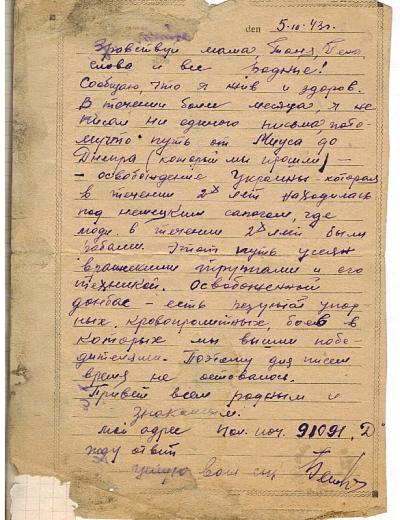 den 5.10.43г.
Здравствуй мама Таня, Гена
слова и все родные!
Сообщаю, что я жив и здоров.
В течении более месяца, я не
писал ни одного письма, пото-
мучто путь от Миуса до
Днепра (который мы прошли) –
– освобождение Украины – которая
в течении 2х лет находилась
под немецким сапогом, где
люди в течении 2х лет были
рабами. Этот путь усеян
вражескими трупами и его
техникой. Освобожденный
донбас – есть результат упор-
ных, кровопролитных, боев в
которых мы вышли побе-
дителями. Поэтому для писем
время не оставалось.
Привет всем родным и
знакомым.
мой адрес пол. поч. 91091. Д
жду ответ
целую ваш сын